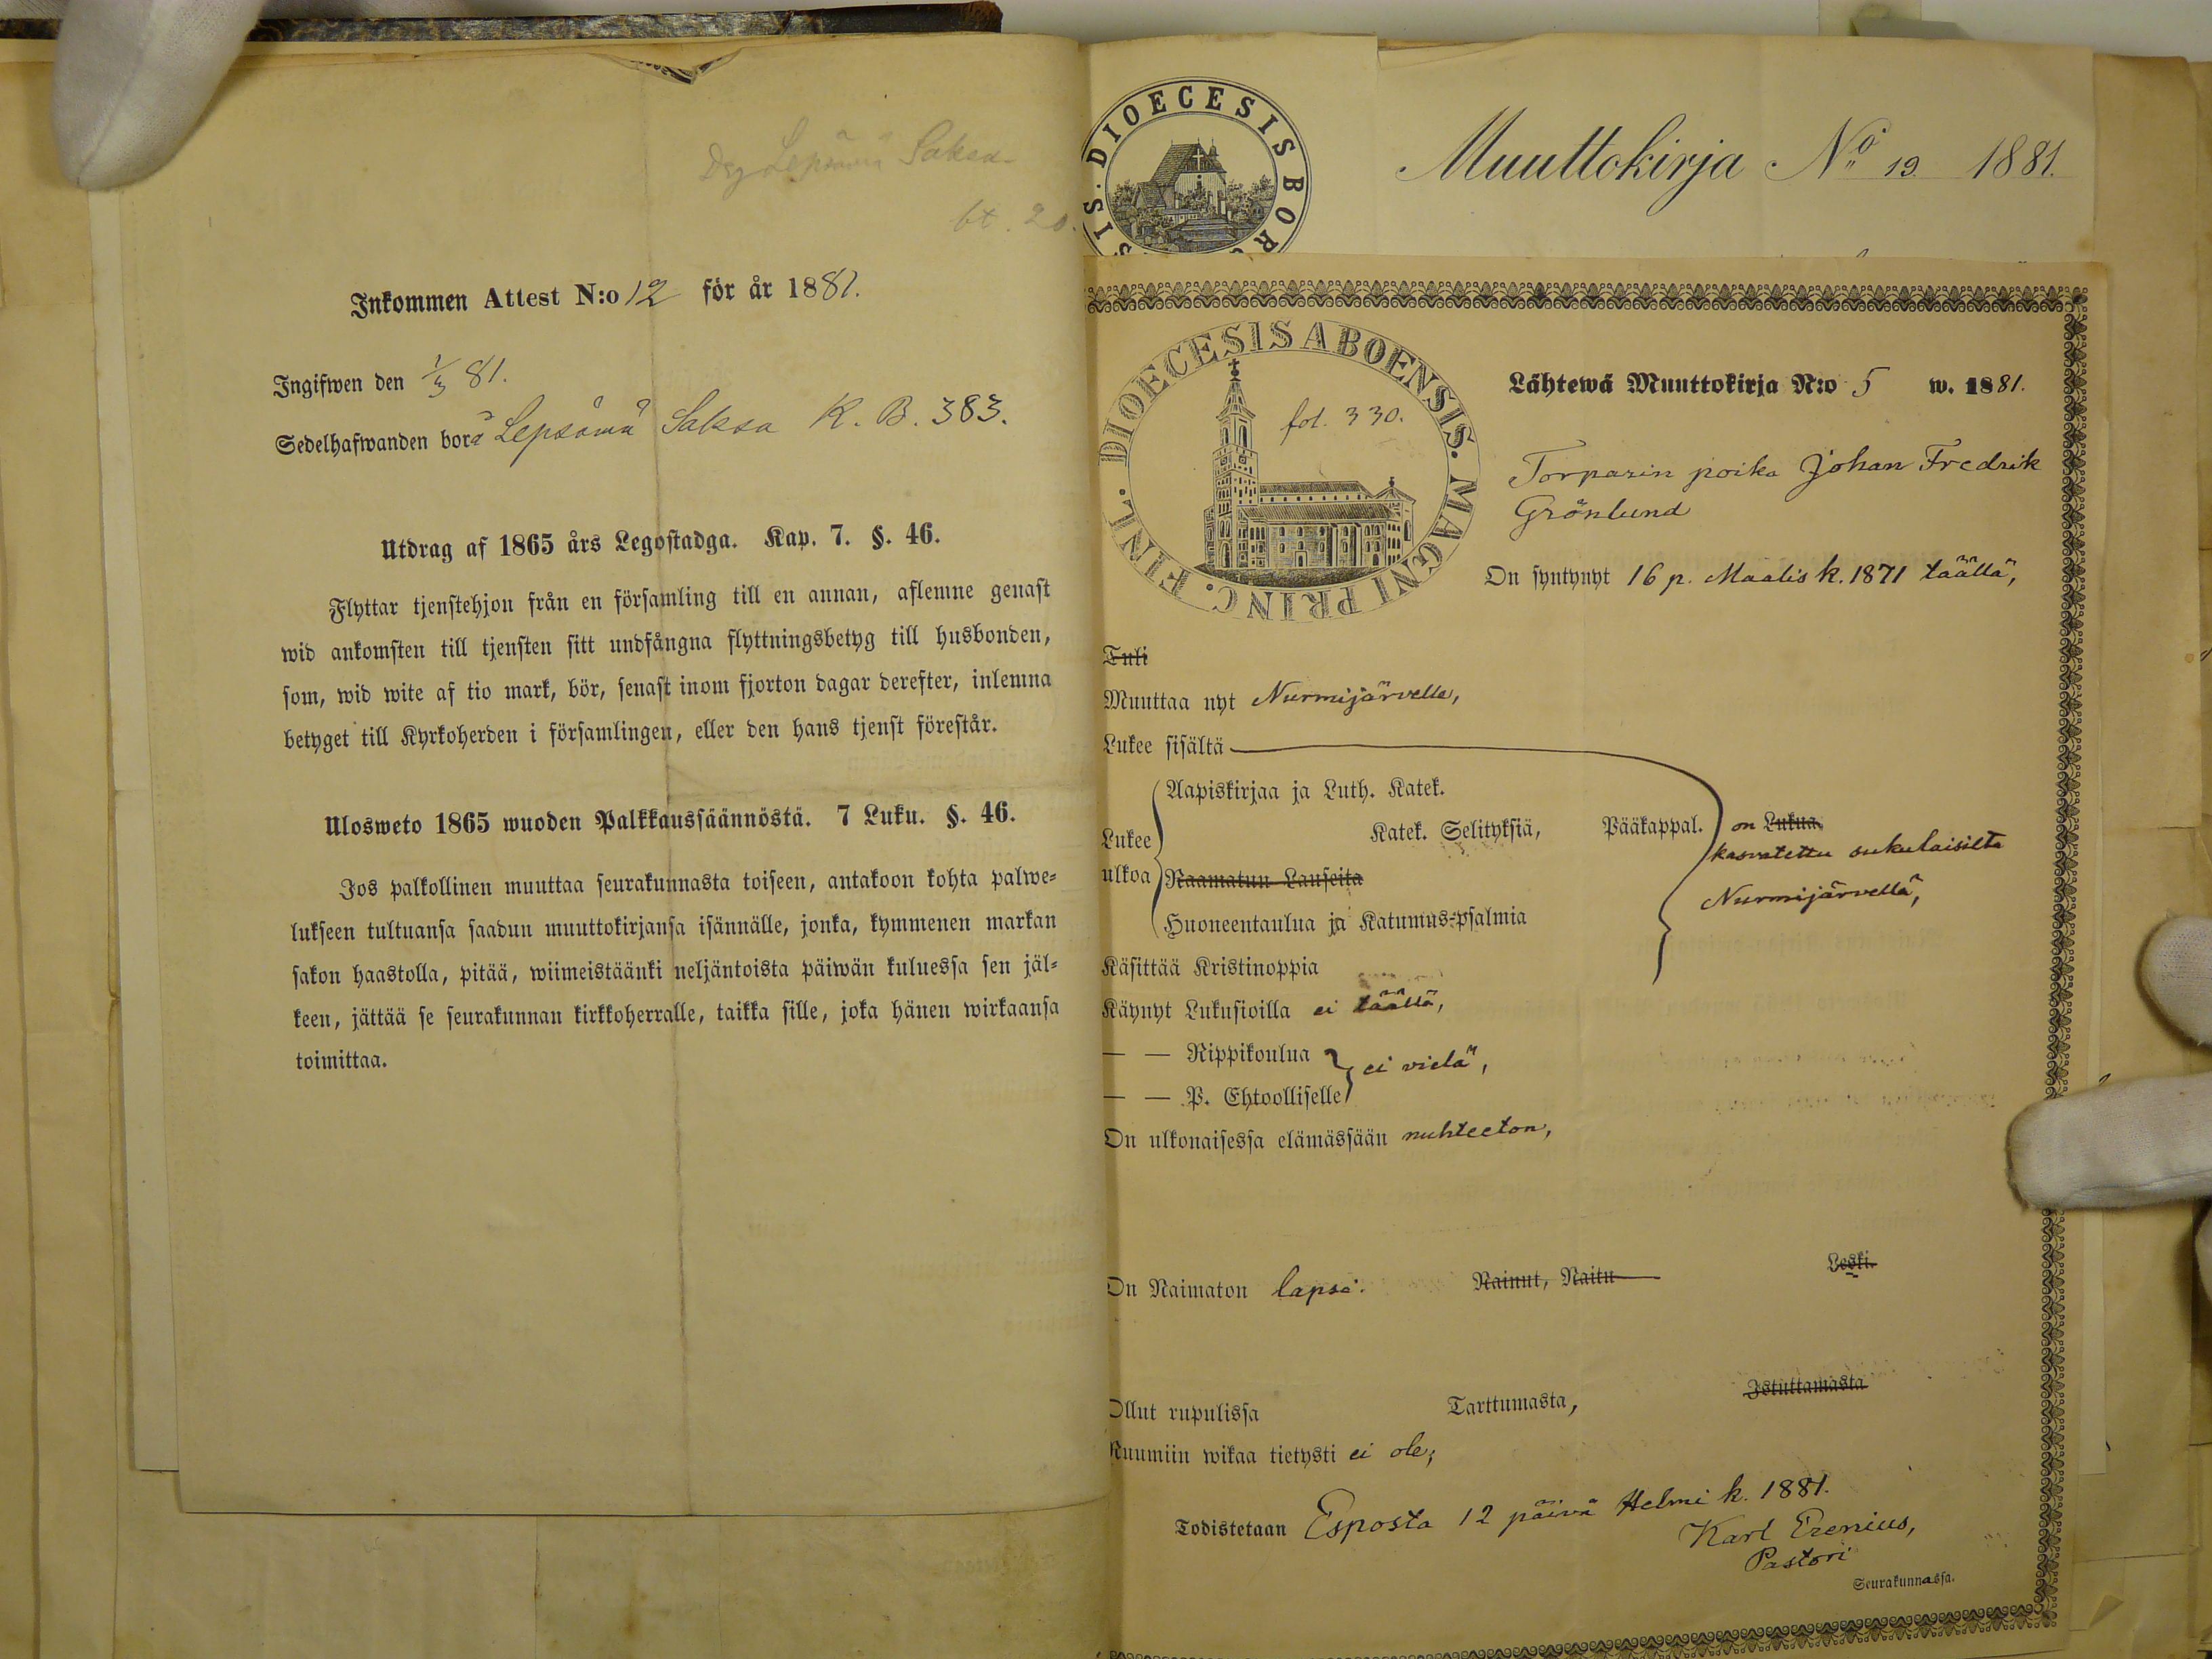 Lepsämä Saksa
bt. 20.
Inkommen Attest N:o 12 för år 1881.
Ingifwen den 1/3 81.
Sedelhafwanden bor å Lepsämä Saksa K. B. 383.
Utdrag af 1865 års Legostadga. Kap. 7. §. 46.
Flyttar tjenstehjon från en församling till en annan, aflemne genast
wid ankomsten till tjensten sitt undfångna flyttningsbetyg till husbonden,
som, wid wite af tio mark, bör, senast inom fjorton dagar derefter, inlemna
betyget till Kyrkoherden i församlingen, eller den hans tjenst förestår.
Ulosweto 1865 wuoden Palkkaussäännöstä. 7 Luku. §. 46.
Jos palkollinen muuttaa seurakunnasta toiseen, antakoon kohta palwe-
lukseen tultuansa saadun muuttokirjansa isännälle, jonka, kymmenen markan
sakon haastolla, pitää, wiimeistäänki neljäntoista päiwän kuluessa sen jäl-
keen, jättää se seurakunnan kirkkoherralle, taikka sille, joka hänen wirkaansa
toimittaa.
SIS. DIOECESIS BORG
Muuttokirja No 19. 1881.
DIOECESIS ABOENSIS. MAGNI PRINC. FINL.
fol. 330.
Lähtewä Muuttokirja N:o 5 w. 1881.
Torparin poika Johan Fredrik
Grönlund
On syntynyt 16 p. Maalis k. 1871 täällä,
Tuli
Muuttaa nyt Nurmijärvelle,
Lukee sisältä
Aapiskirjaa ja Luth. Katek.
Lukee ulkoa
Katek. Selityksiä, Pääkappal. on Lukua.
kasvatettu sukulaisilta
Raamatun Lauseita
Nurmijärvellä,
Huoneentaulua ja Katumus-psalmia
Käsittää Kristinoppia
Käynyt Lukusioilla ei täällä,
— — Rippikoulua
ei vielä,
— — P. Ehtoolliselle
On ulkonaisessa elämässään nuhteeton,
On Naimaton lapsi. Nainut, Naitu Leski.
Ollut rupulissa Tarttumasta, Istuttamasta
Ruumiin wikaa tietysti ei ole;
Todistetaan Esposta 12 päivä Helmi k. 1881.
Karl Erenius,
Pastori
Seurakunnassa.